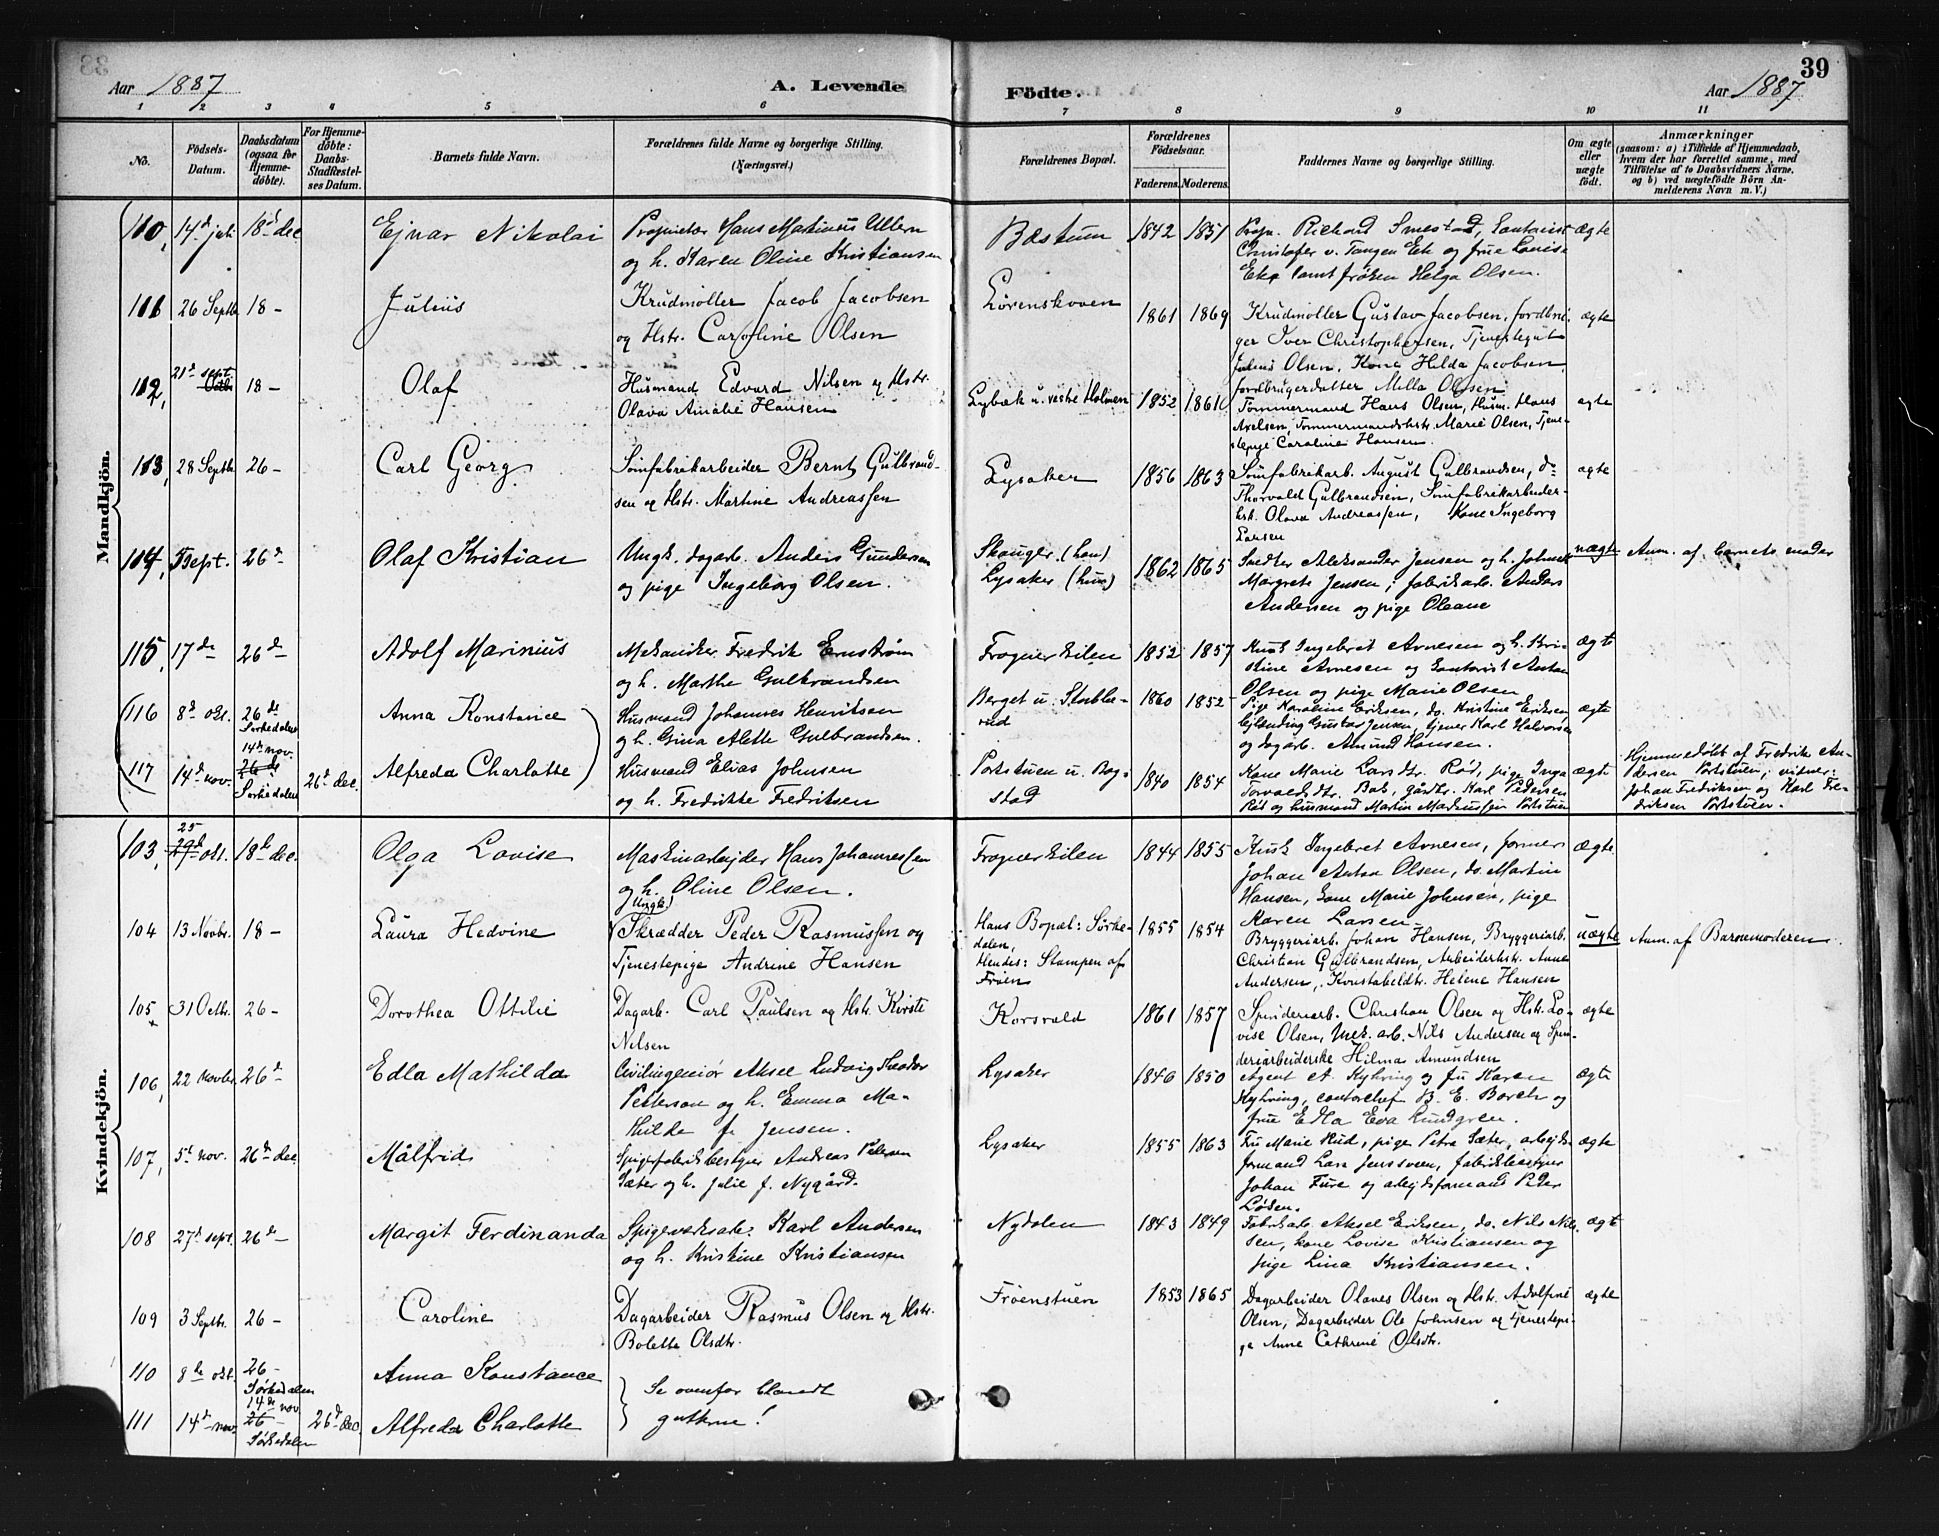 Aar 1887
A. Levende Födte.
39
Aar 1887
1 2 3 4 5 6 7 8 9 10 11
No.
Födsels-Datum.
Daabsdatum (ogsaa for Hjemme-döbte).
For Hjemme-döbte: Daabs-Stadfæstelses Datum.
Barnets fulde Navn.
Forældrenes fulde Navne og borgerlige Stilling. (Næringsvei.)
Forældrenes Bopæl.
Forældrenes Födselsaar.
Faderens. Moderens.
Faddernes Navne og borgerlige Stilling.
Om ægte eller uægte födt.
Anmærkninger
(saasom: a) i Tilfælde af Hjemmedaab,
hvem der har forrettet samme, med
Tilföielse af to Daabsvidners Navne,
og b) ved uægtefödte Börn Anmelderens Navn m. V.)
Mandkjön.
110, 14d juli 18d dec. Ejnar Nikolai
Proprietær Hans Martinius Ullern
og h. Karen Oline Kristiansen
Bestum 1842 1851
Prop. Richard Smestad, Kontorist
Christofer v. Tangen Ek og frue Louise
Ek, samt frøken Helga Olsen.
ægte
111 26 Septb 18 - Julius
Krudmöller Jacob Jacobsen
og Hstr. Caroline Olsen
Lörenskoven 1861 1869
Krudmöller Gustav Jacobsen, Jordbruger
Iver Christophersen, Tjenestegut
Julius Olsen, Kone Hilda Jacobsen,
Jordbrugerdatter Milla Olsen
ægte
112, 21d sept. 18 - Olaf
Husmand Edvard Nilsen og Hstr.
Olava Amalie Hansen
Lybæk u. vestre Holmen 1852 1861
Tømmermand Hans Olsen, Husm. Hans
Axelsen, Tømmermandshstr. Marie Olsen, Tjenestepige
Caroline Hansen.
ægte
113, 28 Septb 26 - Carl Georg
Sömfabrikarbeider Bernt Gulbrandsen
og Hstr. Martine Andreassen
Lysaker 1856 1863
Sömfabrikarb. August Gulbrandsen, do
Thorvald Gulbrandsen, Sömfabrikarbeider-
hstr. Olava Andreassen, Kone Ingeborg
Larsen
ægte
114, Sept. 26d Olaf Kristian
Ungk. dagarb. Anders Gundersen
og pige Ingeborg Olsen.
Skauger (han)
Lysaker (hun)
1862 1865
Smed Aleksander Jensen og h. Johanne
Margrete Jensen; fabrikarb. Anders
Andersen og pige Oleane
uægte
Anm. af barnets moder
115, 17de 26de Adolf Marinius
Mekaniker Fredrik Ernstrøm
og h. Marthe Gulbrandsen
Frognerkilen 1852 1857
Kusk Ingebret Arnesen og h. Kristine
Arnesen og Kontorist Anton
Olsen og pige Marie Olsen
ægte
116 8d okt. 26de Sørkedalen Anna Konstance
Husmand Johannes Henriksen
og h. Gina Alette Gulbrandsen.
Berget u. Stubberud
1860 1852
Pige Karoline Eriksen, do. Kristine Eriksen,
Gustav Jensen, tjener Karl Halvorsen
og dagarb. Amund Hansen.
ægte
117 14d nov. 14de nov. 26de Sørkedalen 26d dec. Alfreda Charlotte
Husmand Elias Johnsen
og h. Fredrikke Fredriksen
Portstuen u. Bogstad
1840 1854
Kone Marie Larsdtr. Rød, pige Inga
Torvaldsdtr. Bak, gårdbr. Karl Pedersen
Rød og husmand Martin Markussen Portstuen
ægte
Hjemmedøbt af Fredrik Andersen
Portstuen; vitner:
Johan Fredriksen og Karl Fredriksen
Portstuen.
Kvindekjön.
103, 25 29d okt. 18de dec. Olga Lovise
Maskinarbejder Hans Johannessen
og h. Oline Olsen.
Frognerkilen 1844 1855
Kusk Ingebret Arnesen, former
Johan Anton Olsen, do. Martin
Hansen, kone Marie Johnsen, pige
Karen Larsen
ægte
104 13 Novbr. 18 - Laura Hedvine
(Ungk.)
Skrædder Peder Rasmussen og
Tjenestepige Andrine Hansen
Hans Bopæl: Sørkedalen,
Hendes: Stampen af
Frøen
1855 1854
Bryggeriarb. Johan Hansen, Bryggeriarb.
Christian Gulbrandsen, Arbeiderhstr. Anne
Andersen, Konstabeldtr. Helene Hansen
uægte
Anm. af Barnemoderen.
105 31 Octbr. 26 - Dorothea Ottilie
Dagarb. Carl Paulsen og Hstr. Kirste
Nilsen
Korsvold 1861 1857
Spinderiarb. Christian Olsen og Hstr. Lovise
Olsen, Mek. arb. Nils Andersen og Spinderiarbeiderske
Hilma Amundsen
ægte
106, 22 Novbr. 26de Edla Mathilde
Civilingeniør Aksel Ludvig Teodor
Petterson og h. Emma Mathilde
f. Jensen.
Lysaker 1846 1850
Agent A. Kyhring og fru Karen
Kyhring, contorchef B. E. Borch og
frue Edla Eva Lundgren.
ægte
107, 5d nov. 26de dec. Målfrid
Spigerfabrikbestyrer Andreas Petersen
Sæter og h. Julie f. Nygård.
Lysaker 1855 1863
Fru Marie Rud, pige Petra Sæter, arbejdsformand
Lars Jenssveen, fabrikbestyrer
Johan Fure og arbejdsformand Peder
Løken.
ægte
108 27d sept. 26de Margit Ferdinanda
Spigerverksarb. Karl Andersen
og h. Kristine Kristiansen
Nydalen 1843 1849
Fabrikarb. Aksel Eriksen, do. Nils Nilsen,
kone Lovise Kristiansen og
pige Lina Kristiansen.
ægte
109 3 Septbr. 26 - Caroline
Dagarbeider Rasmus Olsen og Hstr.
Bolette Olsdtr.
Fröenstuen 1853 1865
Dagarbeider Olaves Olsen og Hstr. Adolfine
Olsen, Dagarbeider Ole Johnsen og tjenestepige
Anne Cathrine Olsdtr.
ægte
110 8de okt. 26 - Sørkedalen Anna Konstance
111 14d nov. 14de nov. 26 - Sørkedalen 26d dec. Alfreda Charlotte
Se ovenfor blandt
guttene!